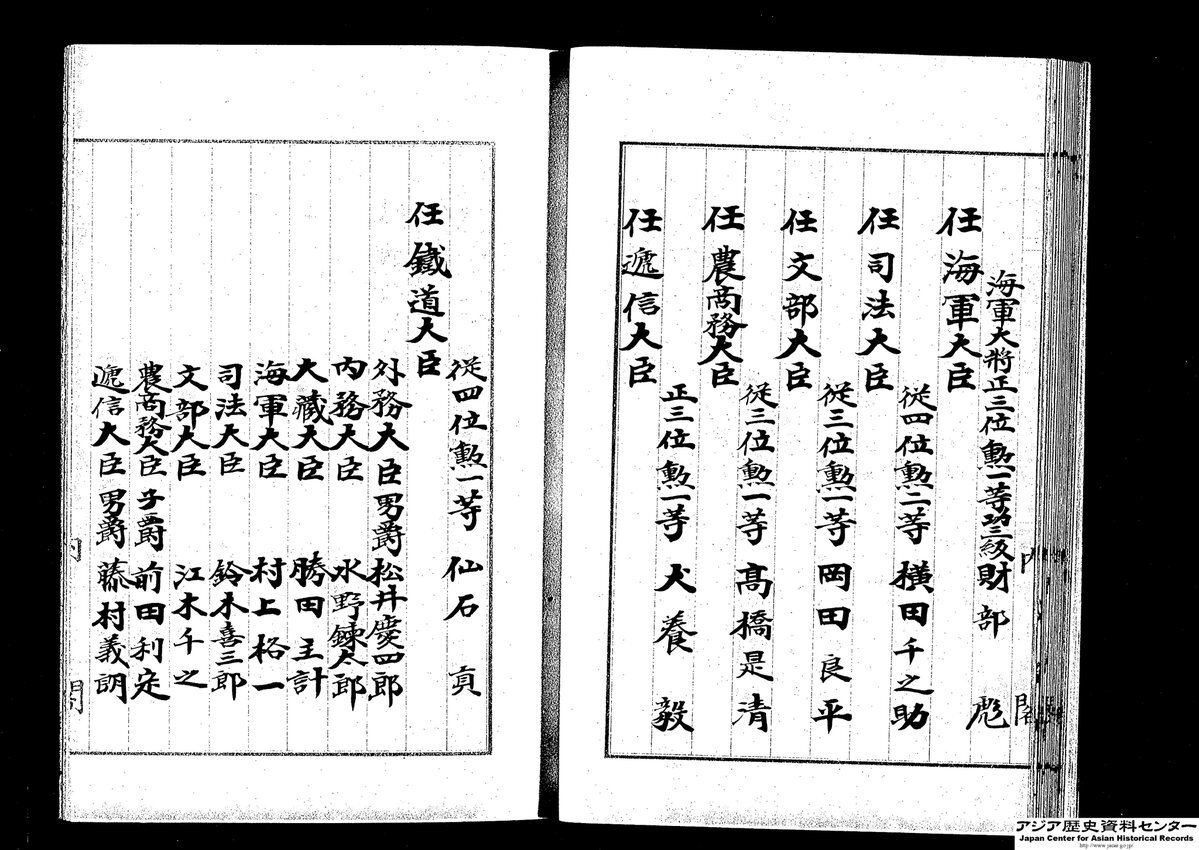 海軍大將正三位勲一等功三級財部 彪
任海軍大臣
從四位勲二等 横田千之助
任司法大臣
從三位勲一等 岡田良平
任文部大臣
從三位勲一等 高橋是清
任農商務大臣
正三位勲一等 犬養 毅
任遞信大臣
從四位勲一等 仙石 貢
任鐵道大臣
外務大臣男爵松井慶四郎
内務大臣 水野錬太郎
大藏大臣 勝田主計
海軍大臣 村上格一
司法大臣 鈴木喜三郎
文部大臣 江木千之
農商務大臣子爵前田利定
遞信大臣男爵藤村義朗
内閣
アジア歴史資料センター
Japan Center for Asian Historical Records
http://www.jacar.go.jp/